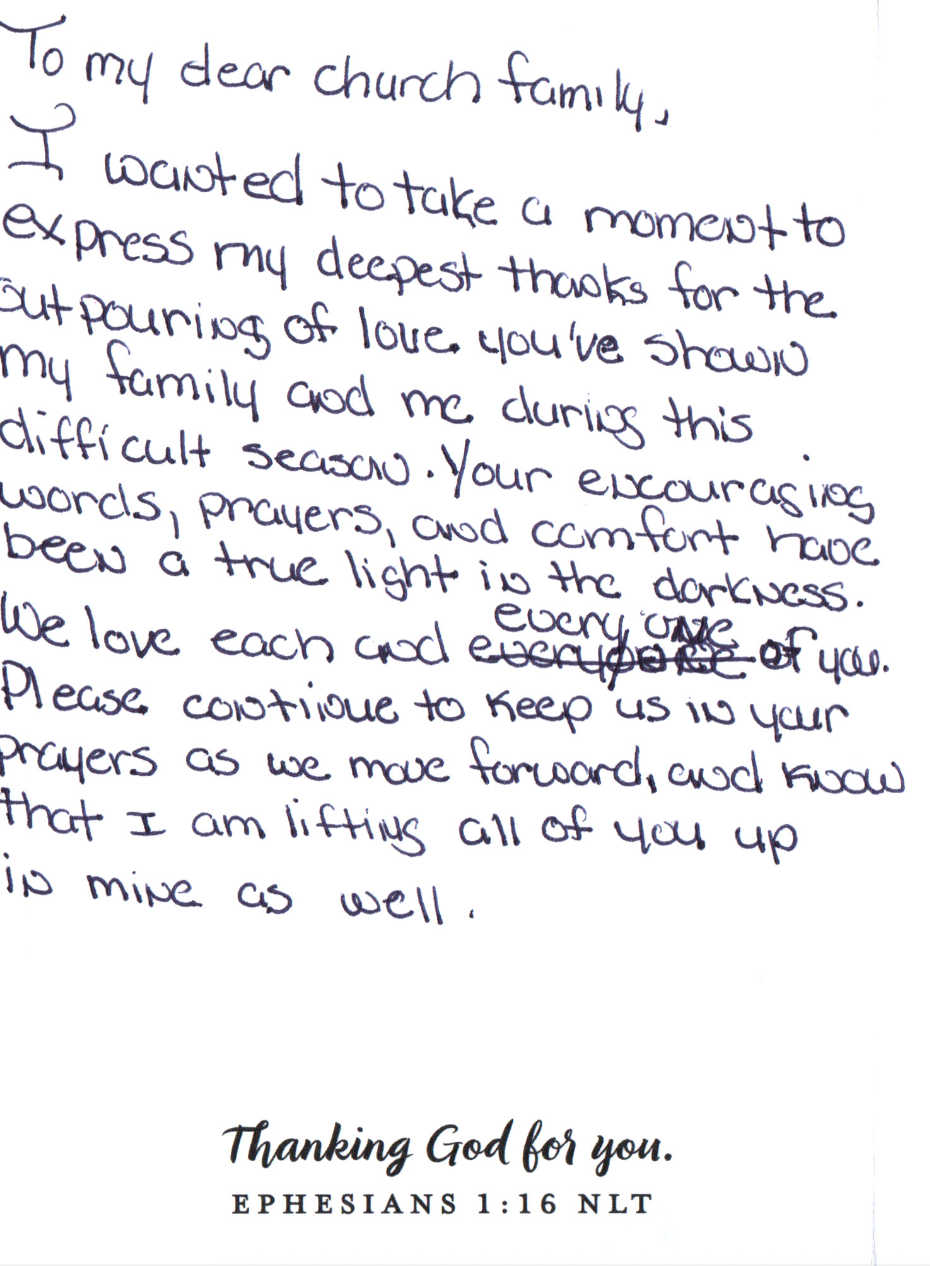 To my dear church family,
I wanted to take a moment to
express my deepest thanks for the
outpouring of love you've shown
my family and me during this
difficult season. Your encouraging
words, prayers, and comfort have
been a true light in the darkness.
every one
We love each and everyone of you.
Please continue to keep us in your
prayers as we move forward, and know
that I am lifting all of you up
in mine as well.
Thanking God for you.
EPHESIANS 1:16 NLT